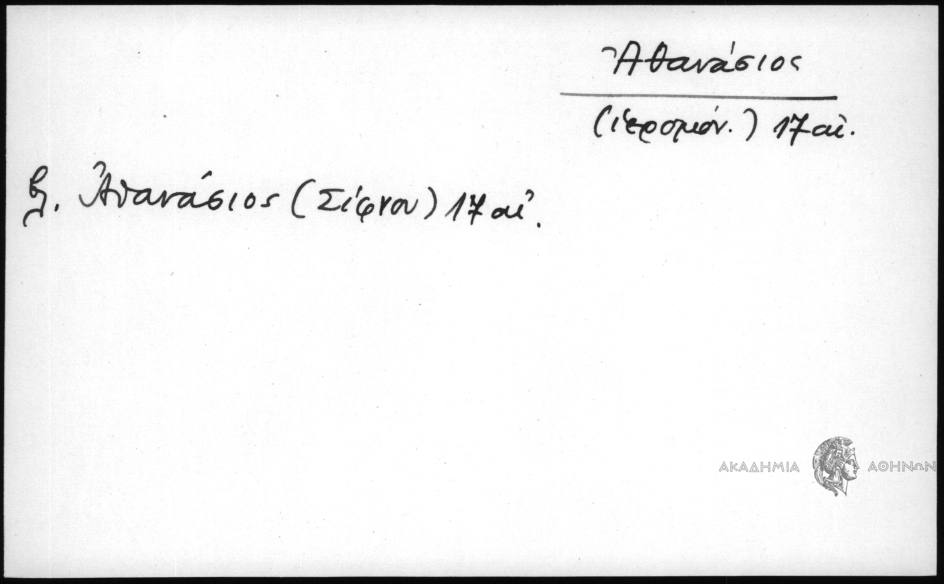 Ἀθανάσιος
(ἱερομόν.) 17 αἰ.
βλ. Ἀθανάσιος (Σίφνου) 17 αἰ.
ΑΚΑΔΗΜΙΑ ΑΘΗΝΩΝ